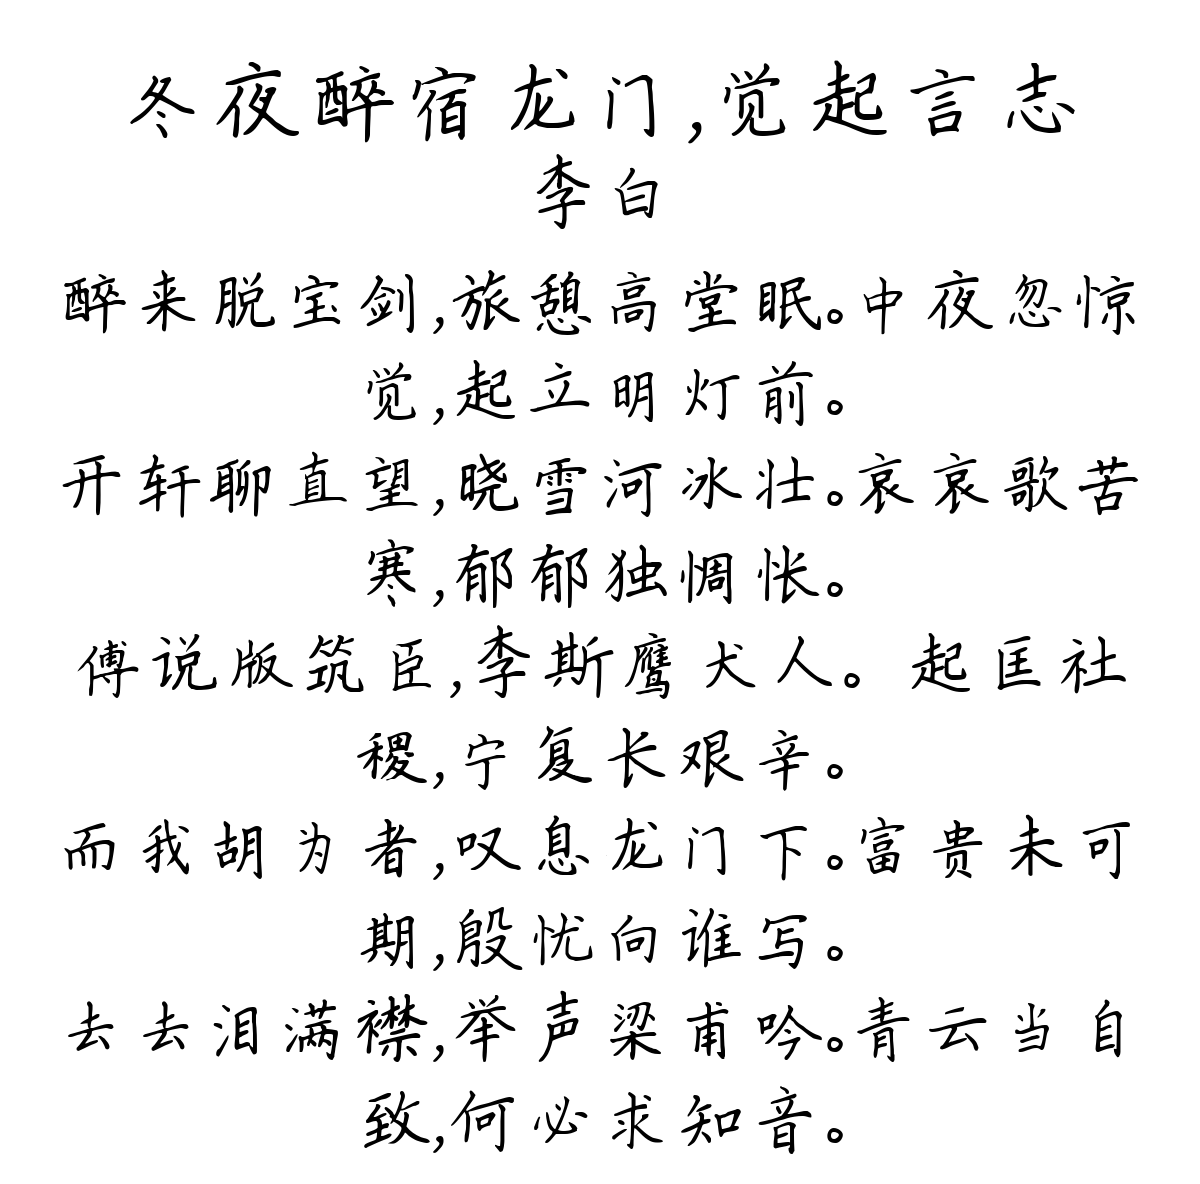 冬夜醉宿龙门,觉起言志
李白
醉来脱宝剑,旅憩高堂眠。中夜忽惊
觉,起立明灯前。
开轩聊直望,晓雪河冰壮。哀哀歌苦
寒,郁郁独惆怅。
傅说版筑臣,李斯鹰犬人。起匡社
稷,宁复长艰辛。
而我胡为者,叹息龙门下。富贵未可
期,殷忧向谁写。
去去泪满襟,举声梁甫吟。青云当自
致,何必求知音。